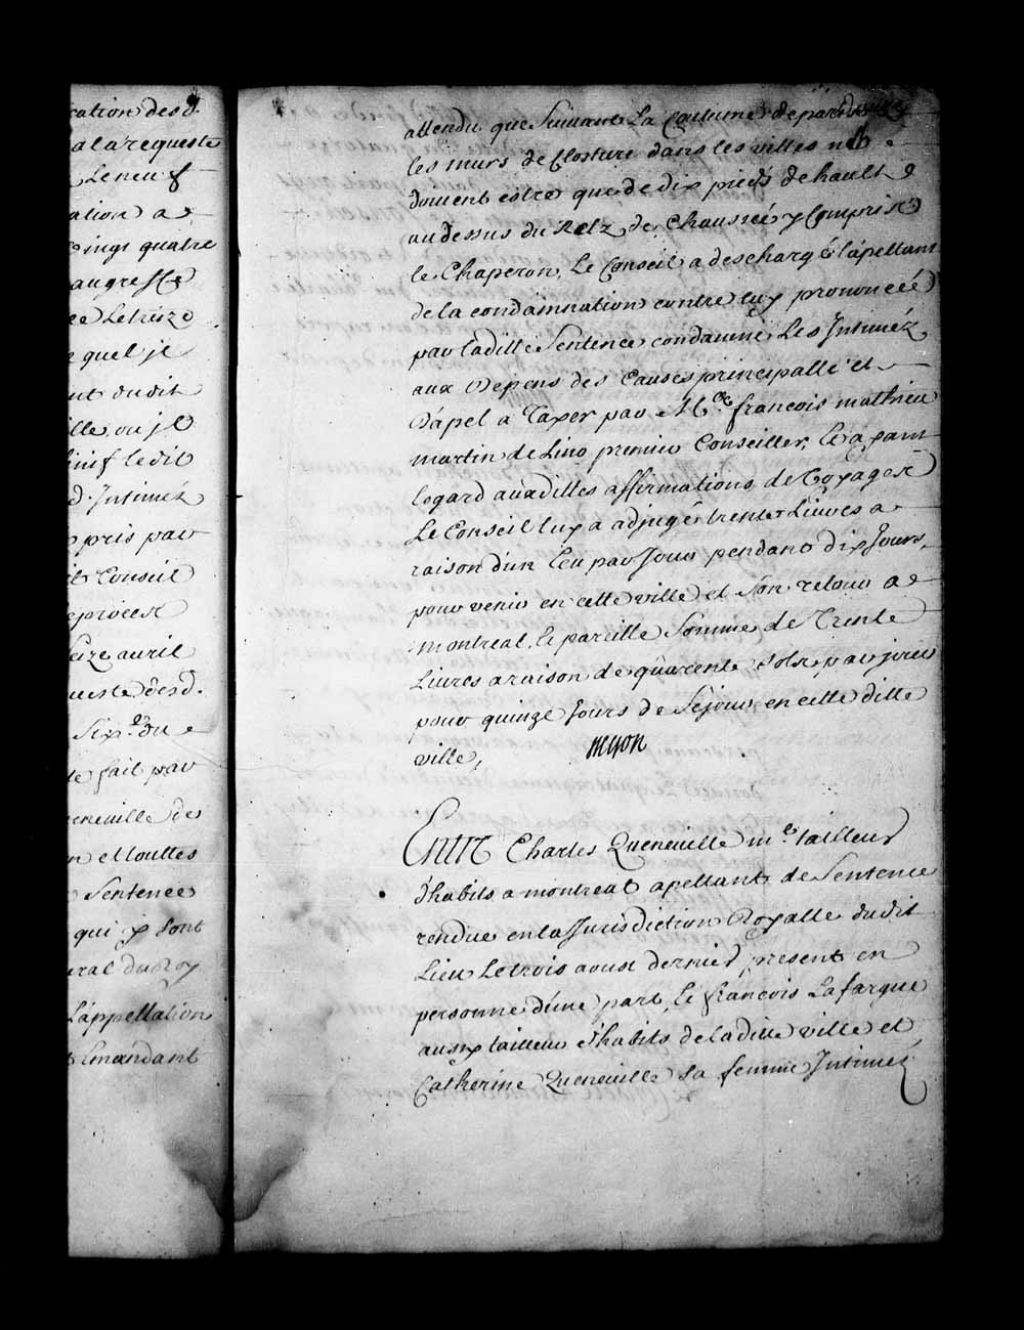 cation des d.
a la requeste
Le neuf
ation a
vingt quatre
au gresse
ce Letreize
quel je
nt dudit
ille, ou je
ledit
d. Intimez
pris par
Conseil
proces
seize auril
ueste desd.
Six.e du
fait par
eneuille de
n et touttes
Sentence
qui y sont
ral du Roy
L'appellation
Emandant
attendu que Suiuant La Coutume de paris
les murs de Closture dans les villes ne
doiuent estre que de dix pieds de hault
au dessus du Retz de Chaussée y Compris
le Chaperon, Le Conseil a deschargé l'apellant
de la condamnation contre luy prononcée
par ladite Sentence condamne Les Intimez
aux Depens des Causes principalle et
d'apel a Taxer par Me. françois mathieu
martin de Lino premier Conseiller, & ayant
Esgard auxdittes affirmations de Voyages
Le Conseil luy a adjugé trente Liures a
raison d'un Ecu par Jour pendant dix Jours,
pour venir en cette ville et son retour a
montreal, & pareille Somme de Trente
Liures a raison de quarente Sols par jour
pour quinze Jours de Sejour en cette ditte
ville,
Entre Charles Queneuille m.e tailleur
d'habits a montreal apellant de Sentence
rendue en la Jurisdiction Royalle dudit
Lieu Le trois aoust dernier present en
personne d'une part, & françois Lafargue
aussy tailleur d'habits de ladite ville et
Catherine Queneuille sa femme Intimez